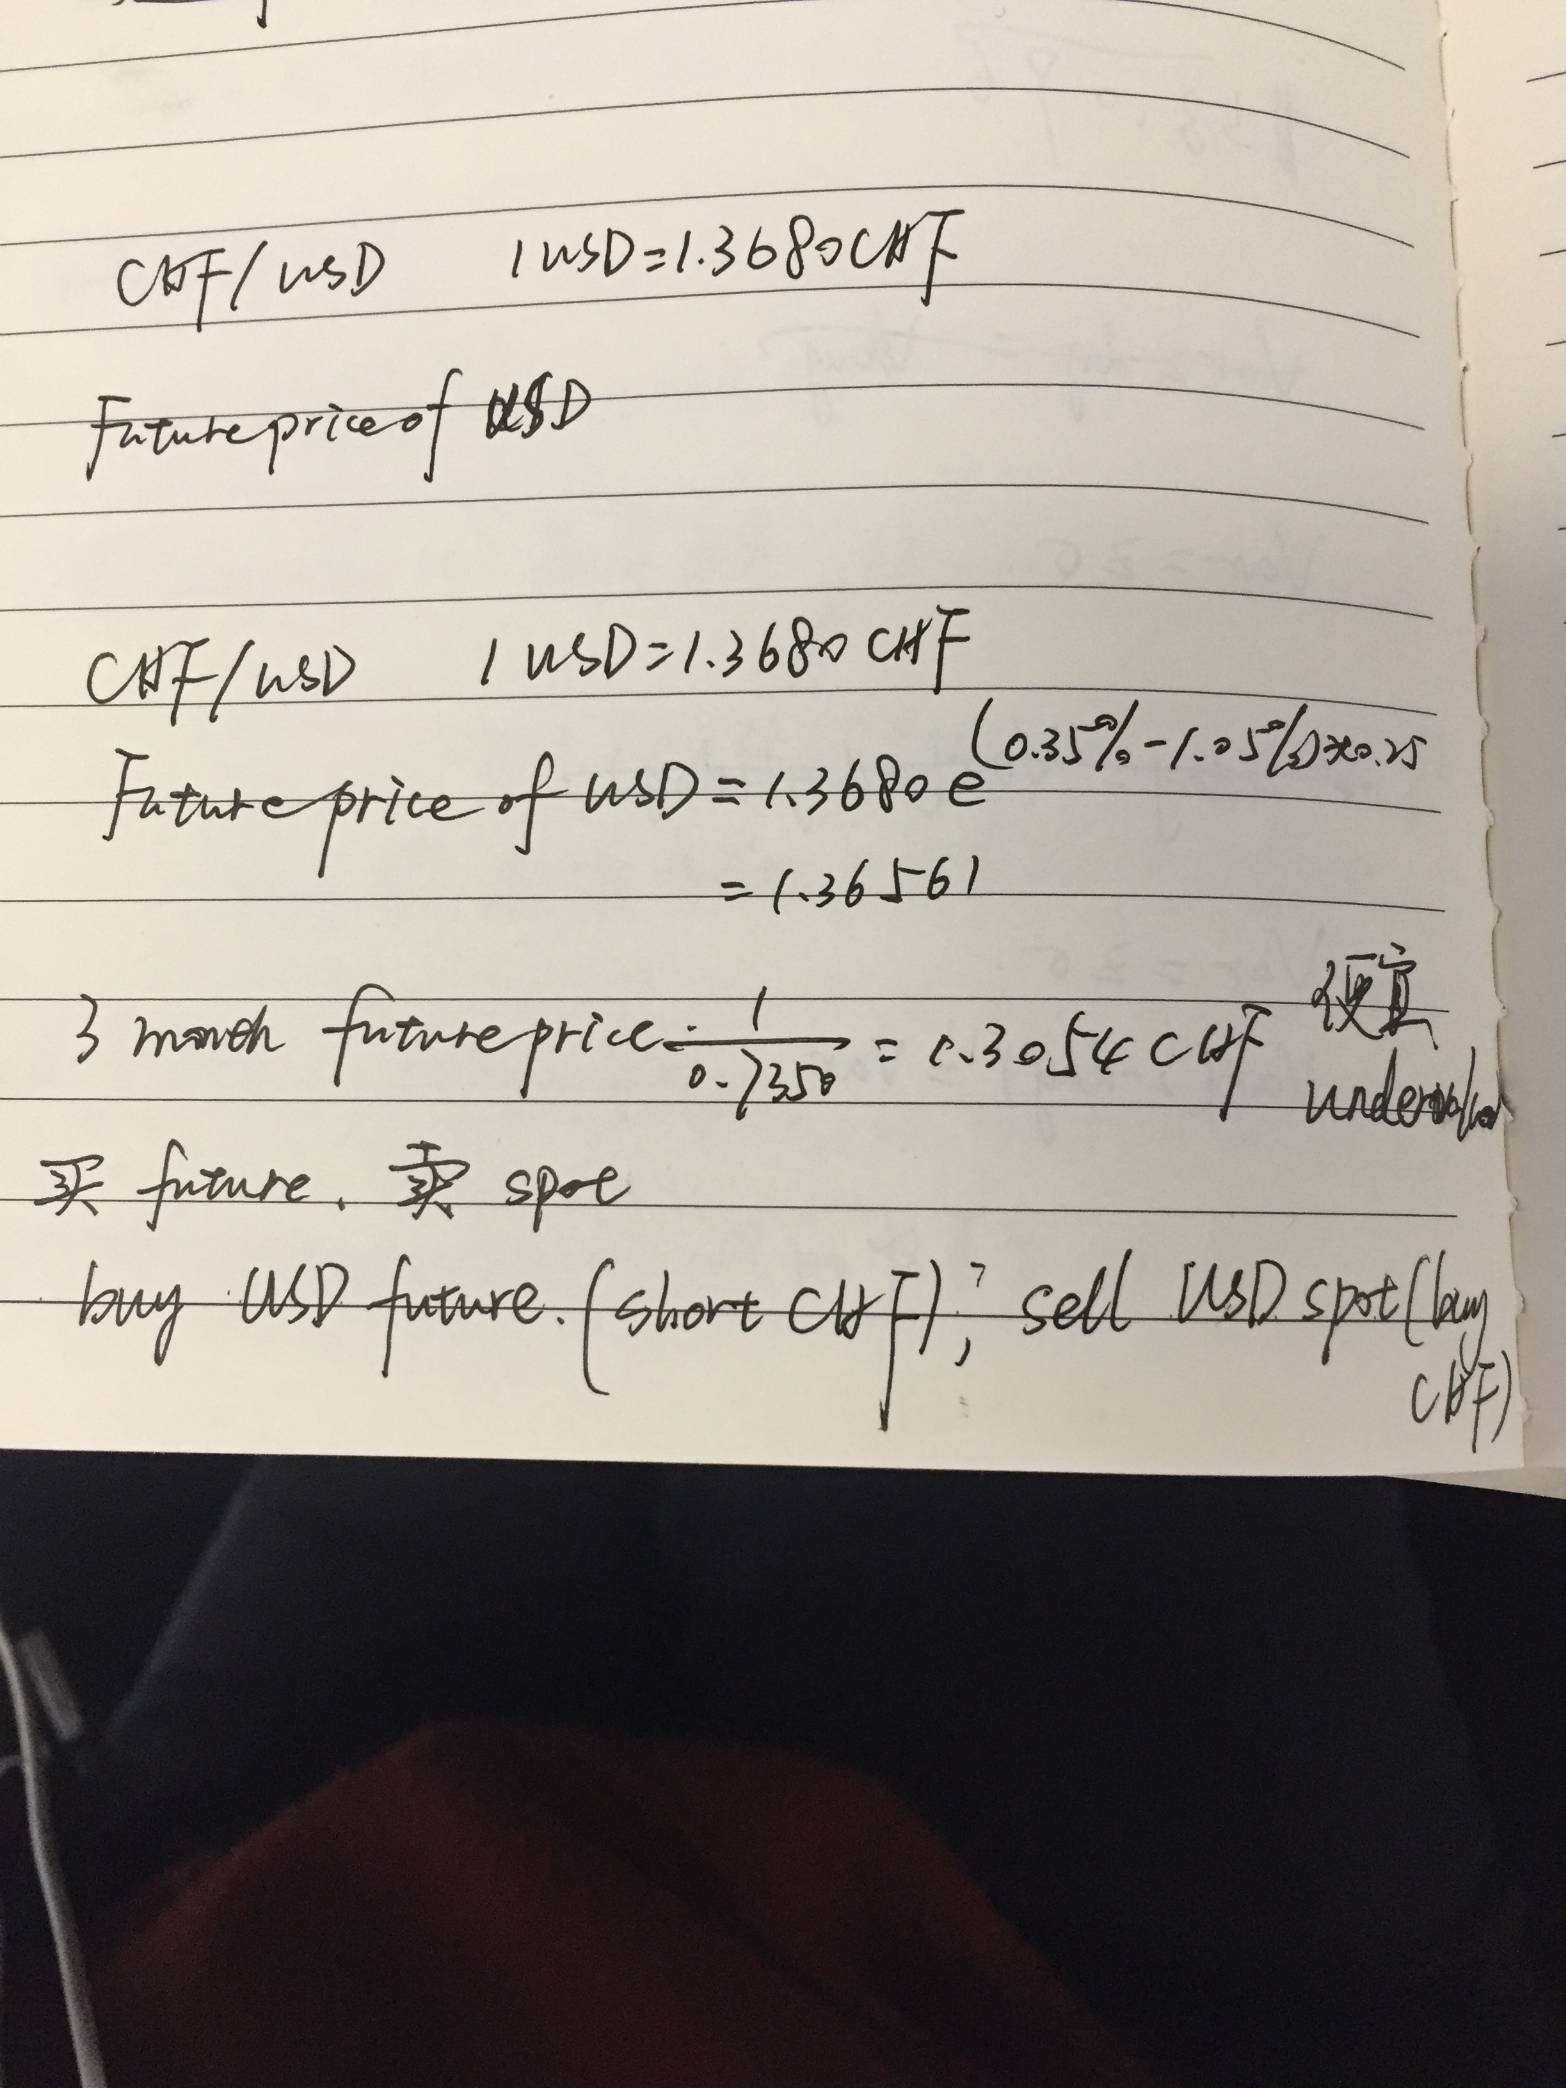 CHF/USD 1 USD=1.3680CHF
Future price of USD
CHF/USD 1 USD=1.3680 CHF
Future price of USD = 1.3680 e^(0.35%-1.05%)×0.25
= 1.36561
3 month future price: 1/0.7350 = 1.3054 CHF 便宜
undervalued
买 future. 卖 spot
buy USD future. (short CHF); sell USD spot (buy
CHF)